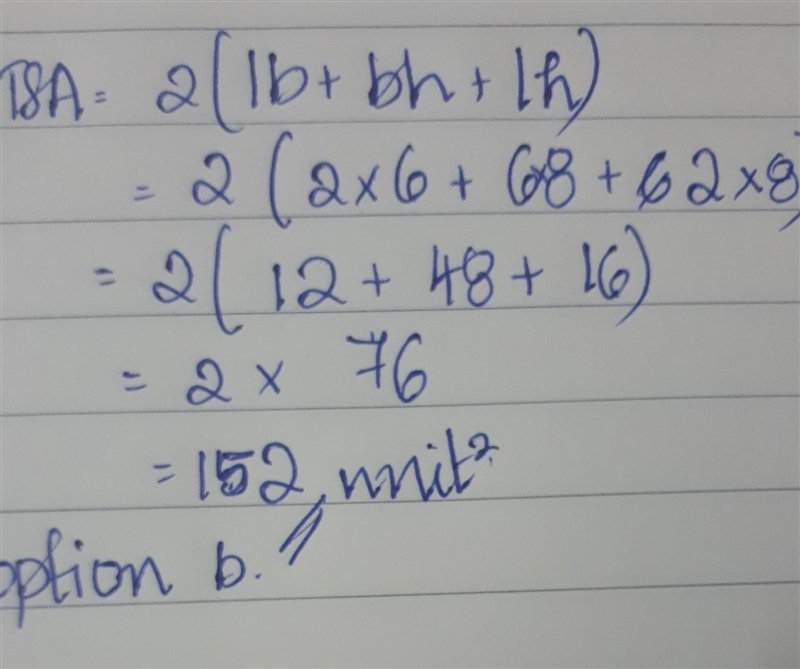 TSA = 2(lb + bh + lh)
= 2 (2×6 + 6×8 + 2×8)
= 2( 12 + 48 + 16)
= 2 × 76
= 152 unit²
option b.